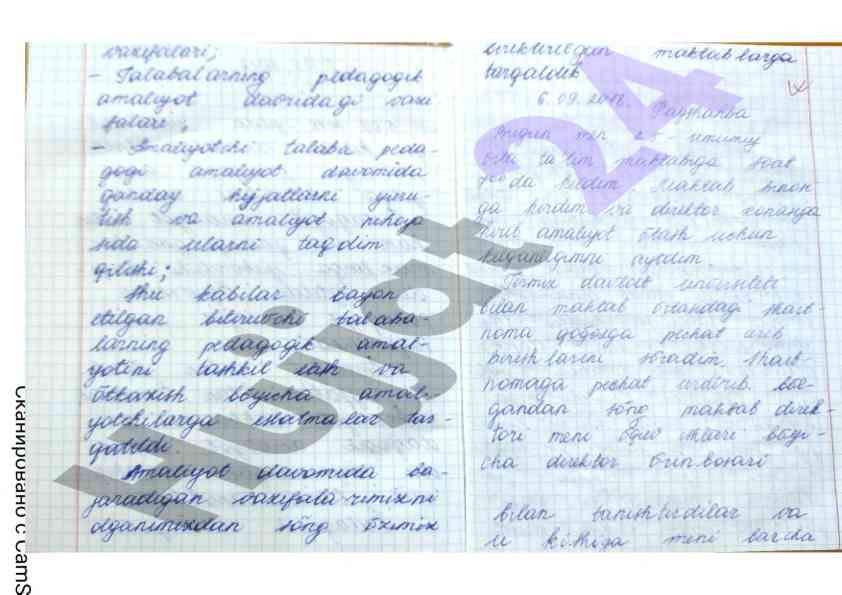 vaxifalari;
- Talabalarning pedagogik
amaliyot davridagi vaxi
falari;
- Amaliyotchi talaba peda-
gogi amaliyot davomida
qanday hujjatlarni yuri-
tish va amaliyot nihoya
sida ularni taqdim
qilishi;
Shu kabilar bayon
etilgan bitiruvchi talaba-
larning pedagogik amal-
yotini tashkil etish va
ötkaxish böyicha amal-
yotchilarga eslatmalar tar-
qatildi.
Amaliyot davomida ba-
jaradigan vaxifala-rimixni
olganimixdan söng öximix
biriktirilgan maktablarga
tarqaldik
6.09.2018. Payshanba
Bugun men 2 - umumiy
örta ta'lim maktabiga soat
da keldim. Maktab binon
ga kirdim va direktor xonasiga
kirib amaliyot ötash uchun
kelganligimni aytdim.
Termix davlat universiteti
bilan maktab örtasidagi shart-
noma qoğoxga pechat urib
berishlarini söradim. Shart-
nomaga pechat urdirib böl-
gandan söng maktab direk-
tori meni öquv ishlari böyi-
cha direktor örinbosari
bilan tanishtirdilar va
u kishiga meni barcha
Hujjat 24
Сканировано с CamS